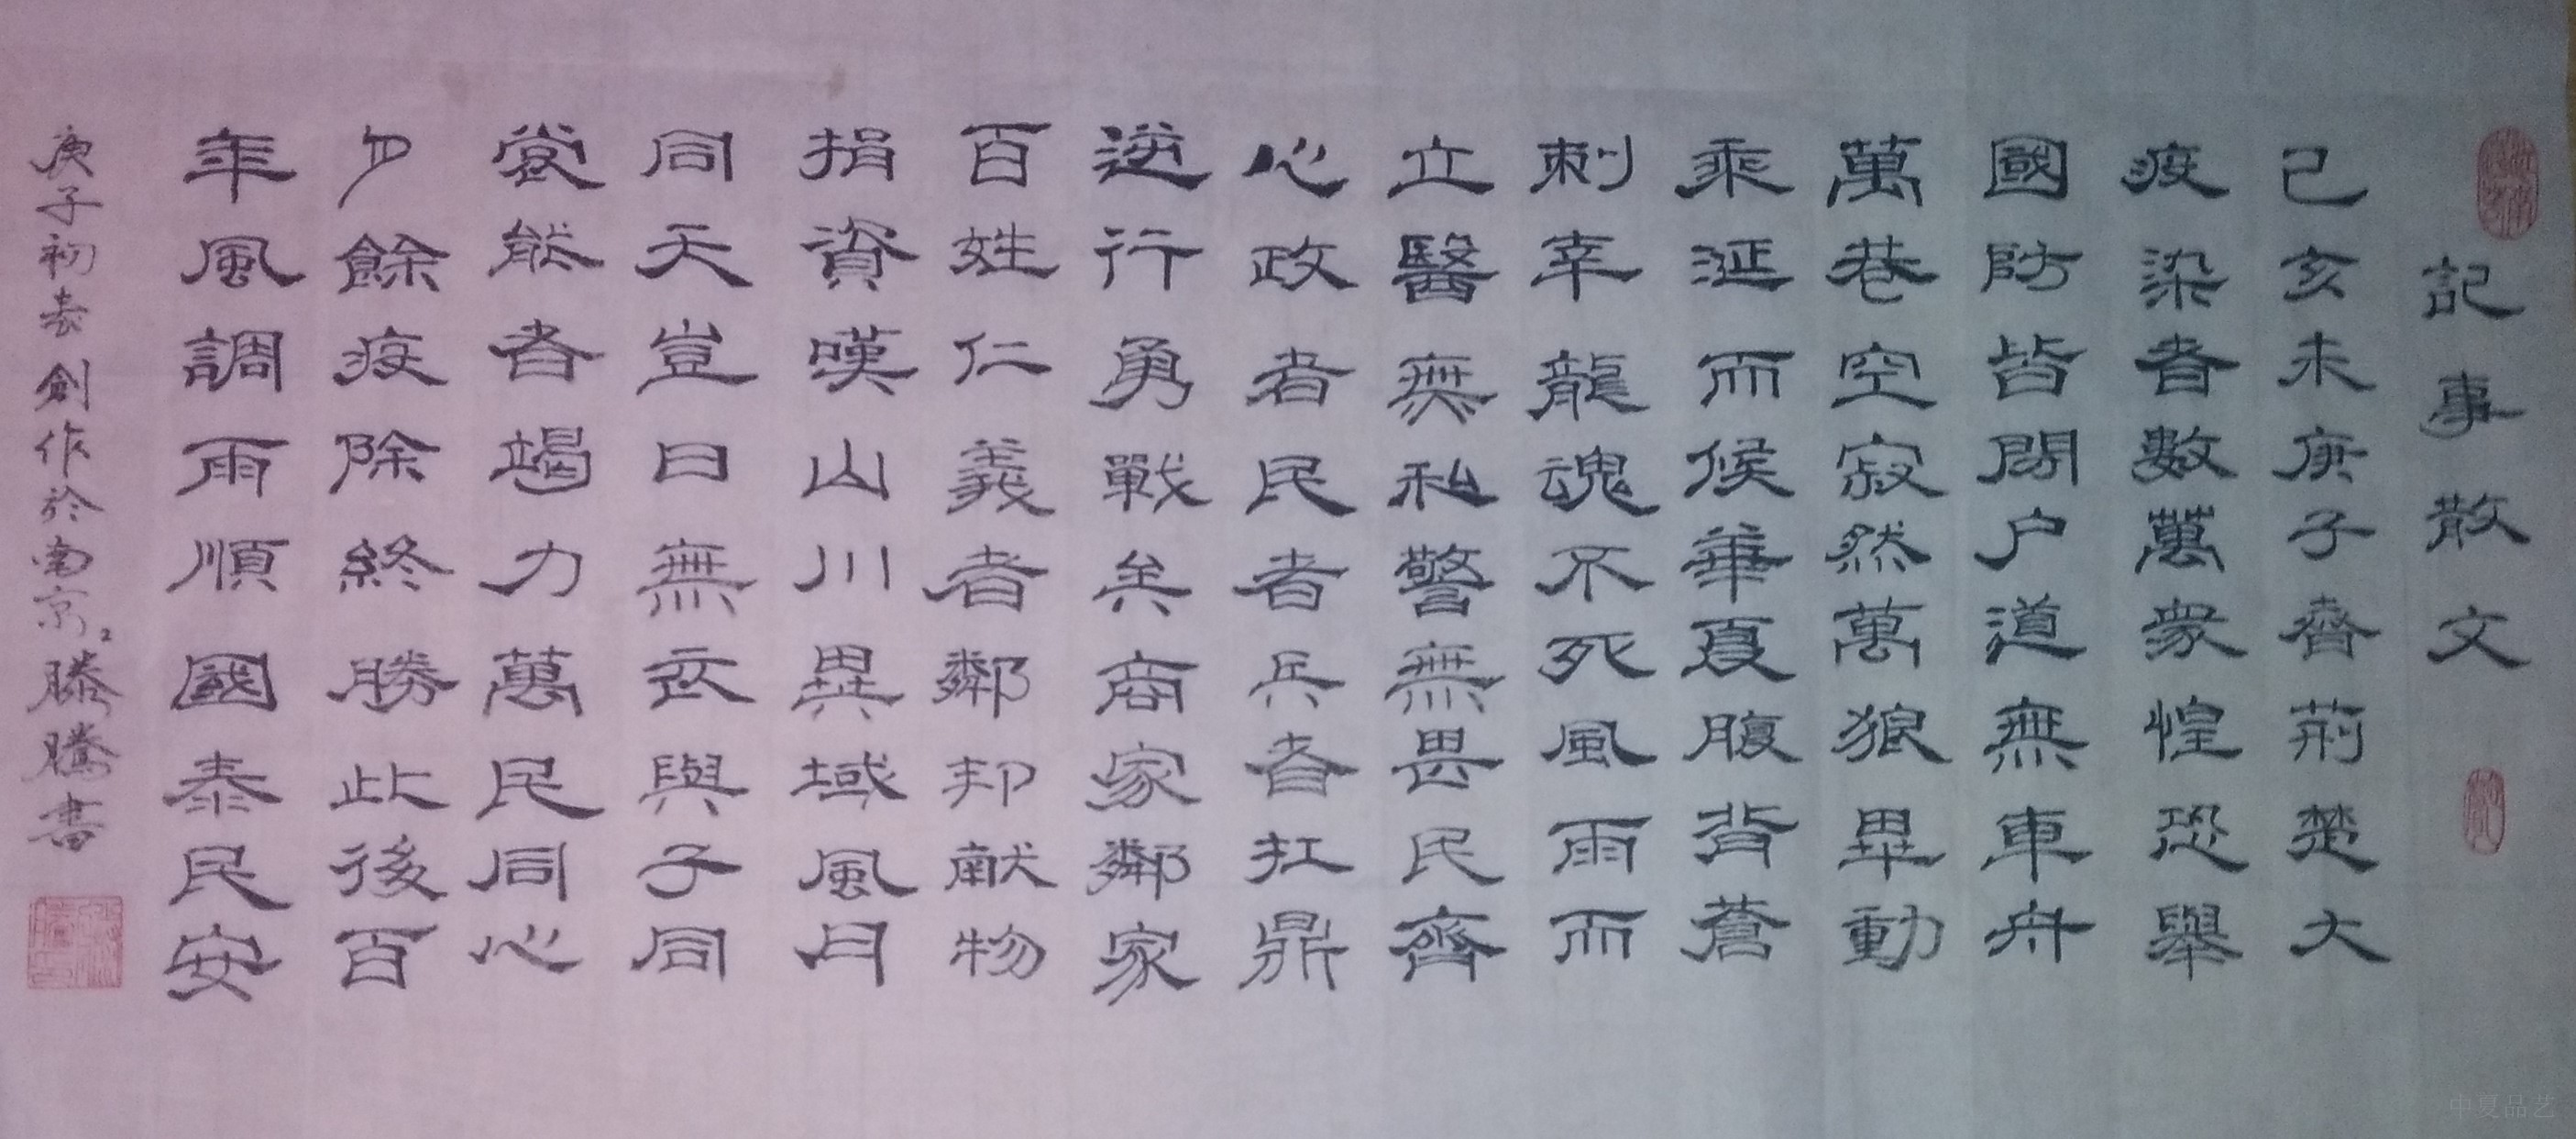 記事散文
己亥末庚子春荊楚大
疫染者數萬衆惶恐舉
國防皆閉户道無車舟
萬巷空寂然萬狼畢動
乘涎而候華夏腹背蒼
刺幸龍魂不死風雨而
立醫無私警無畏民齊
心政者民者兵者扛鼎
逆行勇戰矣商家鄰家
百姓仁義者鄰邦献物
捐資嘆山川異域風月
同天豈曰無衣與子同
裳能者竭力萬民同心
月餘疫除終勝此後百
年風調雨順國泰民安
庚子初春創作於南京 滕騰書
中夏品艺